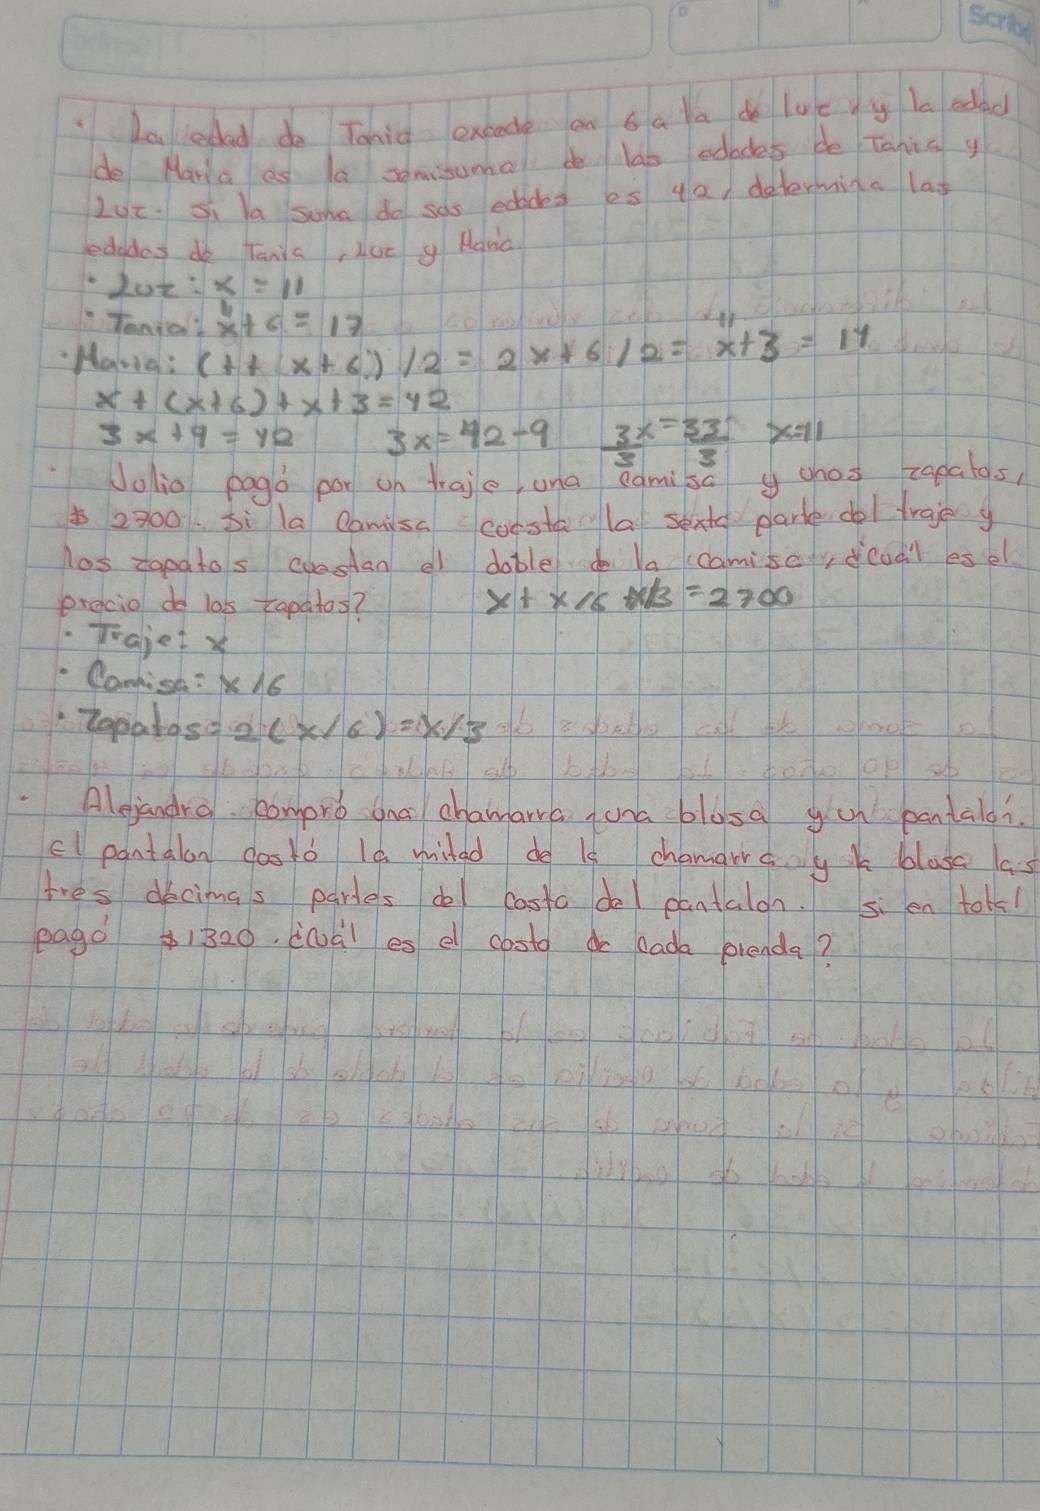 Scribe
• La edad de Tania excede en 6 a la de luz, y la edad
de Maria es la semisuma de las edades de Tania y
Luz. Si la suma de sas edades es 42, determina las
edades de Tania, Luz y Maria
• Luz: x = 11
• Tania: x + 6 = 17
11
• Maria: (++(x+6)) /2 = 2x+6/2 = x+3 = 14
11
x+(x+6)+x+3=42
3x+9=42 3x=42-9 3x/3=33/3 x=11
• Julio pagó por un traje, una camisa y unos zapatos,
$ 2700. Si la Camisa cuesta la sexta parte del traje y
los zapatos cuestan el doble de la camisa, ¿cuál es el
precio de los zapatos? x+x/6+x/3=2700
• Traje: x
• Camisa: x/6
• Zapatos=2(x/6)=x/3
• Alejandra compró una chamarra, una blusa y un pantalón.
El pantalon costó la mitad de la chamarra y la blusa las
tres décimas partes del costo del pantalon. Si en total
pagó $1320. ¿Cuál es el costo de cada prenda?